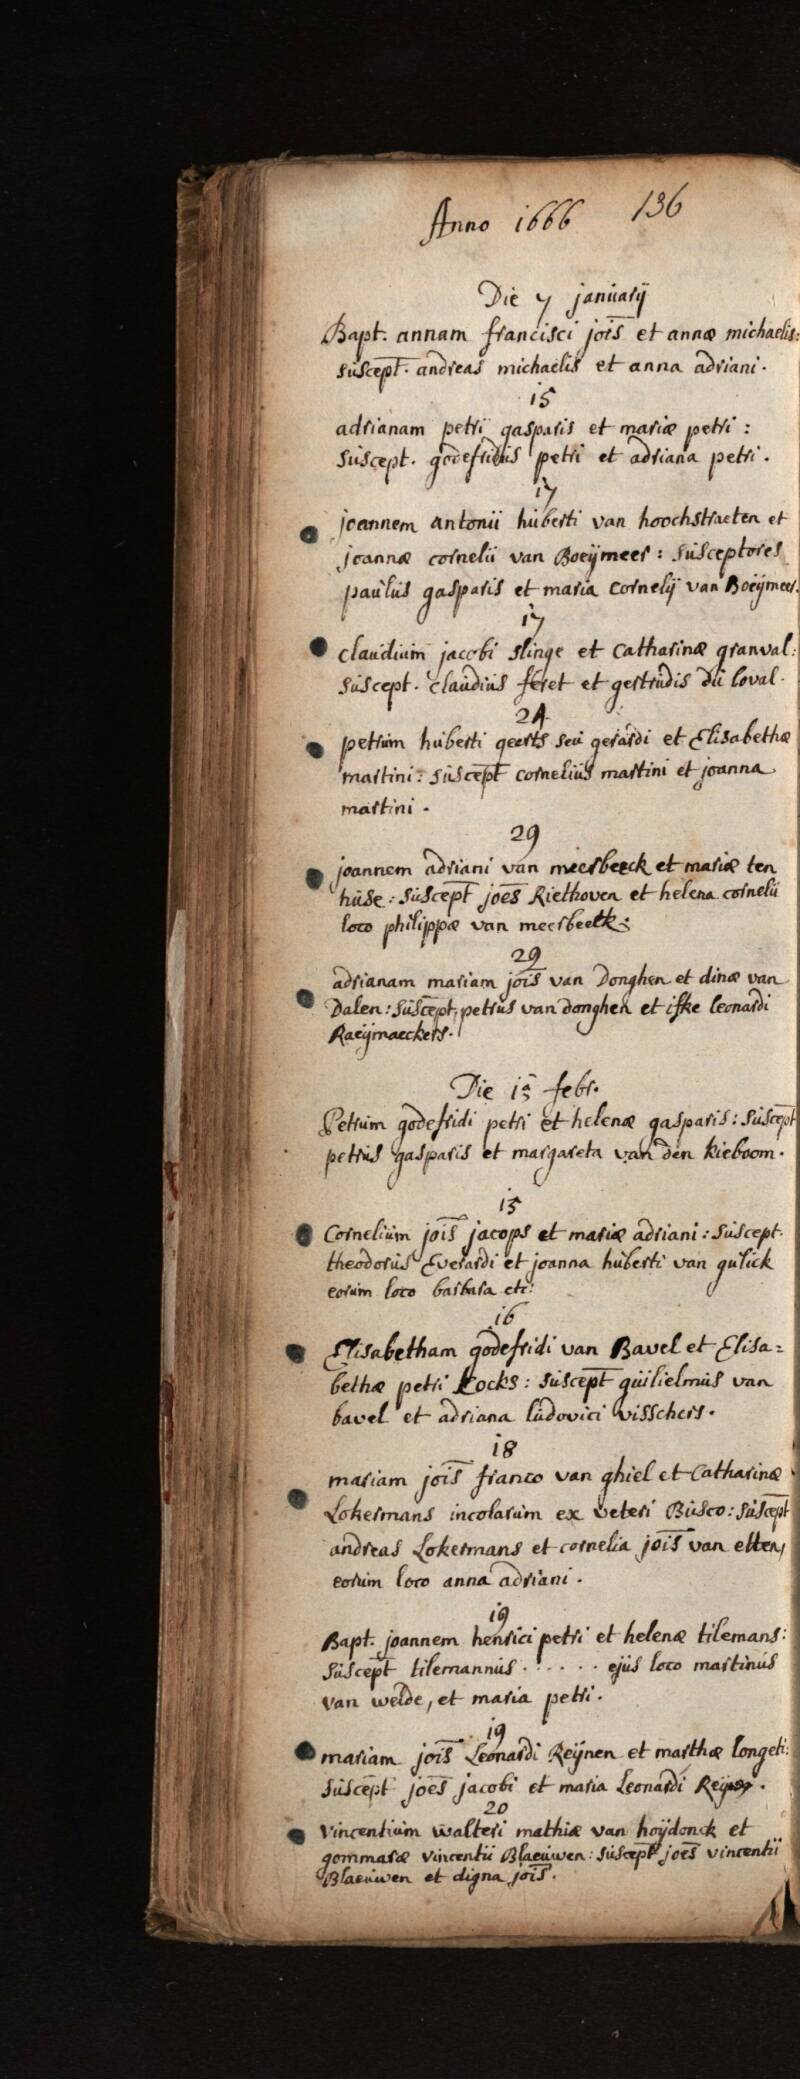 Anno 1666 136
Die 7 januarij
Bapt. annam francisci jois et annæ michaelis:
suscept. andreas michaelis et anna adriani.
15
adrianam petri gasparis et mariæ petri:
suscept. godefridus petri et adriana petri.
17
joannem antonii huberti van hoochstraeten et
joannæ cornelii van Boeijmeer: susceptores
paulus gasparis et maria cornelij van Boeijmeer.
17
claudium jacobi slinge et Catharinæ granval:
suscept. claudius feret et gertrudis du loval.
24
petrum huberti geerts seu gerardi et Elisabethæ
martini: suscept cornelius martini et joanna
martini.
29
joannem adriani van meerbeeck et mariæ ten
huse: suscept joes Riethoven et helena cornelii
loco philippæ van meerbeeck.
29
adrianam mariam jois van Donghen et dinæ van
Dalen: suscept. petrus van donghen et ifke leonardi
Raeijmaeckers.
Die 15 febr.
Petrum godefridi petri et helenæ gasparis: suscept
petrus gasparis et margareta van den kieboom.
15
Cornelium jois jacops et mariæ adriani: suscept.
theodorus Everardi et joanna huberti van gulick
eorum loco barbara etc:
16
Elisabetham godefridi van Bavel et Elisa=
bethæ petri Kocks: suscept guilielmus van
bavel et adriana ludovici visschers.
18
mariam jois franco van ghiel et Catharinæ
Lokermans incolarum ex veteri Busco: suscept
andreas Lokermans et cornelia jois van elten,
eorum loco anna adriani.
19
Bapt. joannem henrici petri et helenæ tilemans:
suscept tilemannus . . . . . . ejus loco martinus
van welde, et maria petri.
19
mariam jois Leonardi Reijnen et marthæ longeti:
suscept joes jacobi et maria Leonardi
20
vincentium walteri mathiæ van hoijdonck et
gommaræ vincentii Blaeuwen: suscept joes vincentii
Blaeuwen et digna jois.